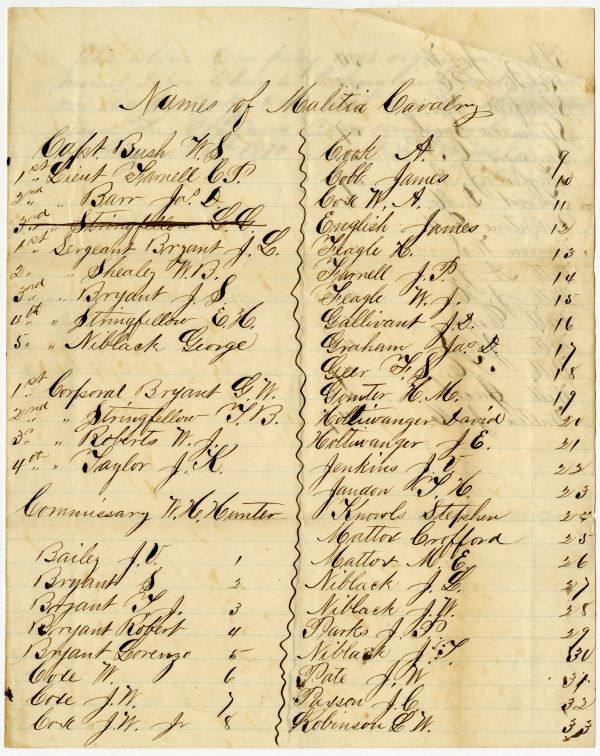 Names of Malitia Cavalry
Capt. Bush W. S.
1st Lieut Farnell C. P.
2nd " Barr Jas. D.
3rd " Stringfellow C. G.
1st Sergeant Bryant J. L.
2" " Shealy W. B.
3rd " Bryant J. S.
4th " Stringfellow E. H.
5" " Niblack George
1st Corporal Bryant G. W.
2nd " Stringfellow T. B.
3" " Roberts W. J.
4th " Taylor J. K.
Commissary W. H. Hunter
Bailey J. V. 1
Bryant S 2
Bryant T. J. 3
Bryant Robert 4
Bryant Lorenzo 5
Coxe W. 6
Coxe J. W. 7
Coxe J. W. Jr 8
Cook A. 9
Cobb James 10
Coxe W. A. 11
English James 12
Feagle H. 13
Farnell J. P. 14
Feagle W. J. 15
Gallivant J. D. 16
Graham Jas D. 17
Geer T. S. 18
H. M. 19
Holliwanger David 20
Holliwanger J. E. 21
Jenkins J. V. 22
Jaudon T. H. 23
Knowls Stephen 24
Mattox Crofford 25
Mattox M. E. 26
Niblack J. L. 27
Niblack J. W. 28
Parks J. P. 29
Niblack J. T. 30
Pate J. W 31
Paxson J. C. 32
Robinson L. W. 33